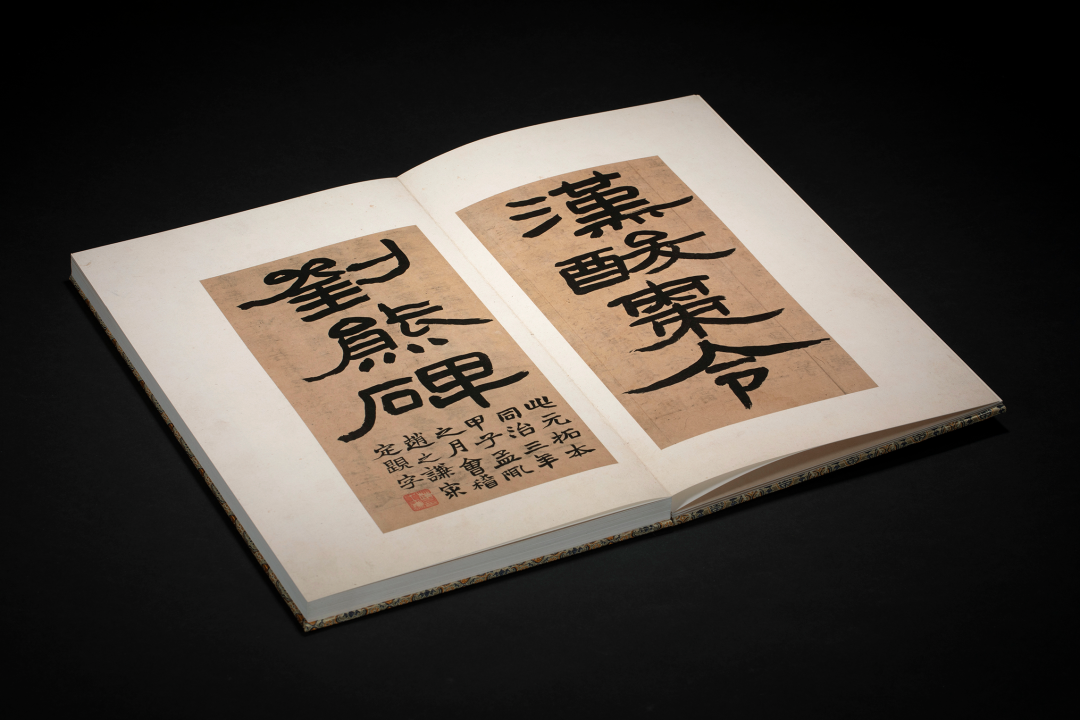 漢酸棗令
劉熊碑
此元拓本
同治三年
甲子孟陬
之月會稽
趙之謙宷
定題字